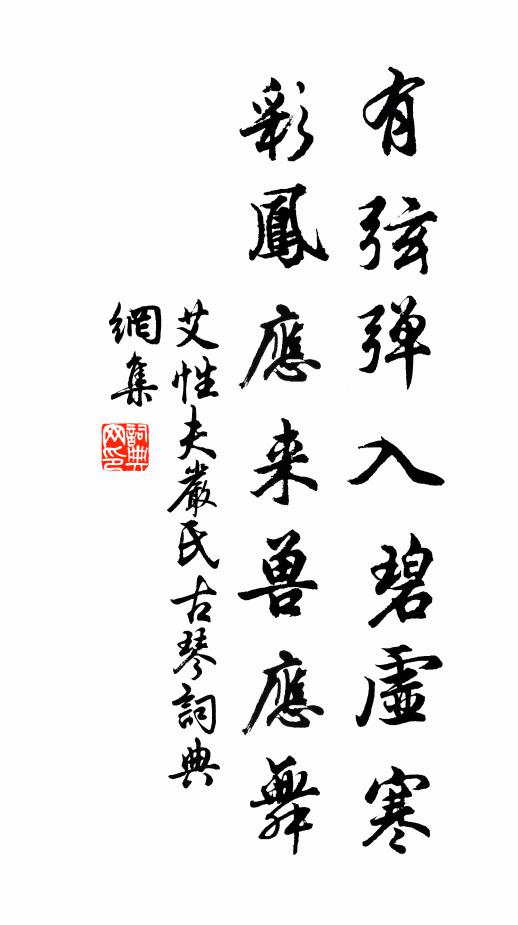 有弦弹入碧虚寒
彩鳳應来兽應舞
艾性夫嚴氏古琴詞典
網集
詞典
网印